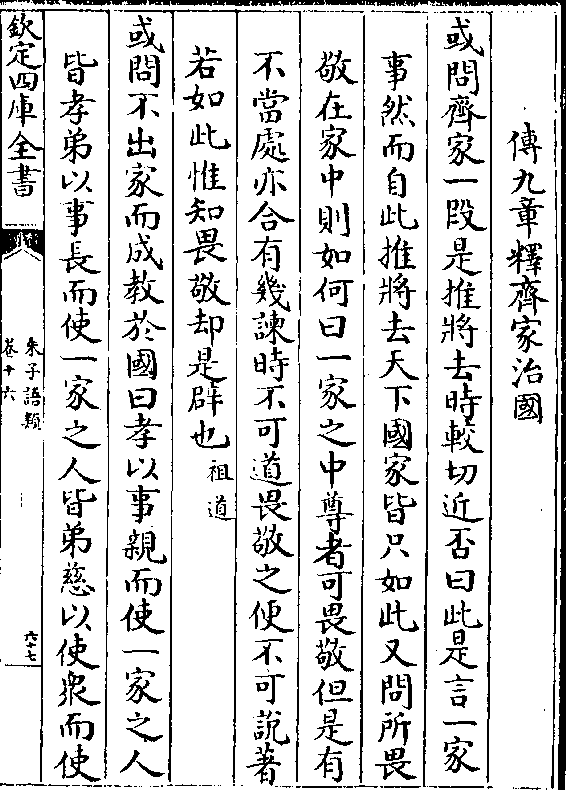 傳九章釋齊家治國
或問齊家一段是推將去時較切近否曰此是言一家
事然而自此推將去天下國家皆只如此又問所畏
敬在家中則如何曰一家之中尊者可畏敬但是有
不當處亦合有幾諫時不可道畏敬之便不可說著
若如此惟知畏敬却是辟也祖道
或問不出家而成教於國曰孝以事親而使一家之人
皆孝弟以事長而使一家之人皆弟慈以使衆而使
欽定四庫全書
朱子語類
卷十六
六十七